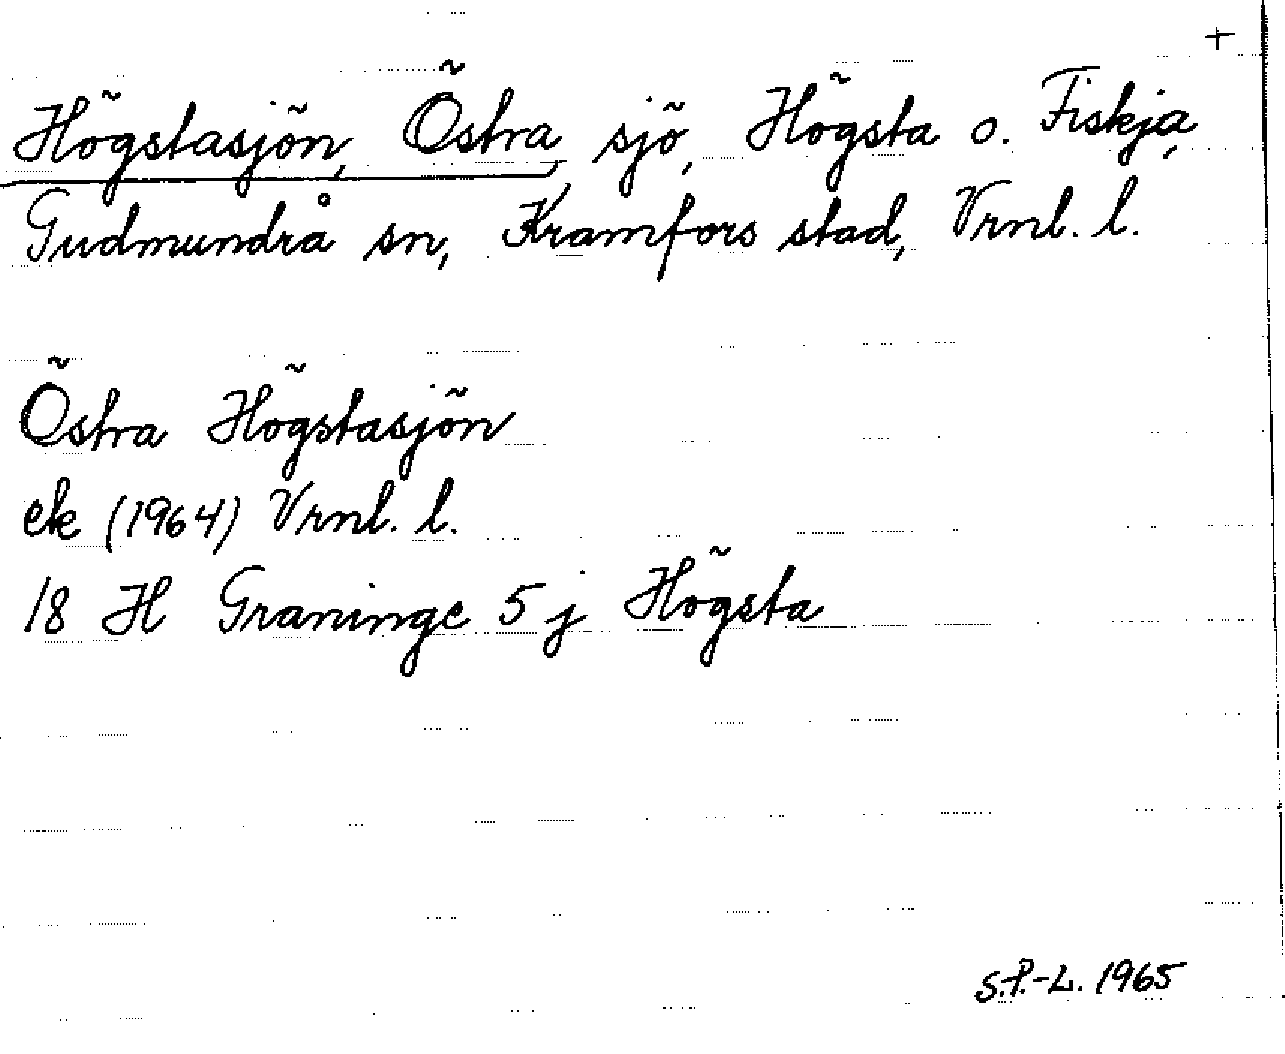 +
Högstasjön, Östra, sjö, Högsta o. Fiskja,
Gudmundrå sn, Kramfors stad, Vrnl. l.
Östra Högstasjön
ek (1964) Vrnl. l.
18 H Graninge 5 j Högsta
S.P.-L. 1965